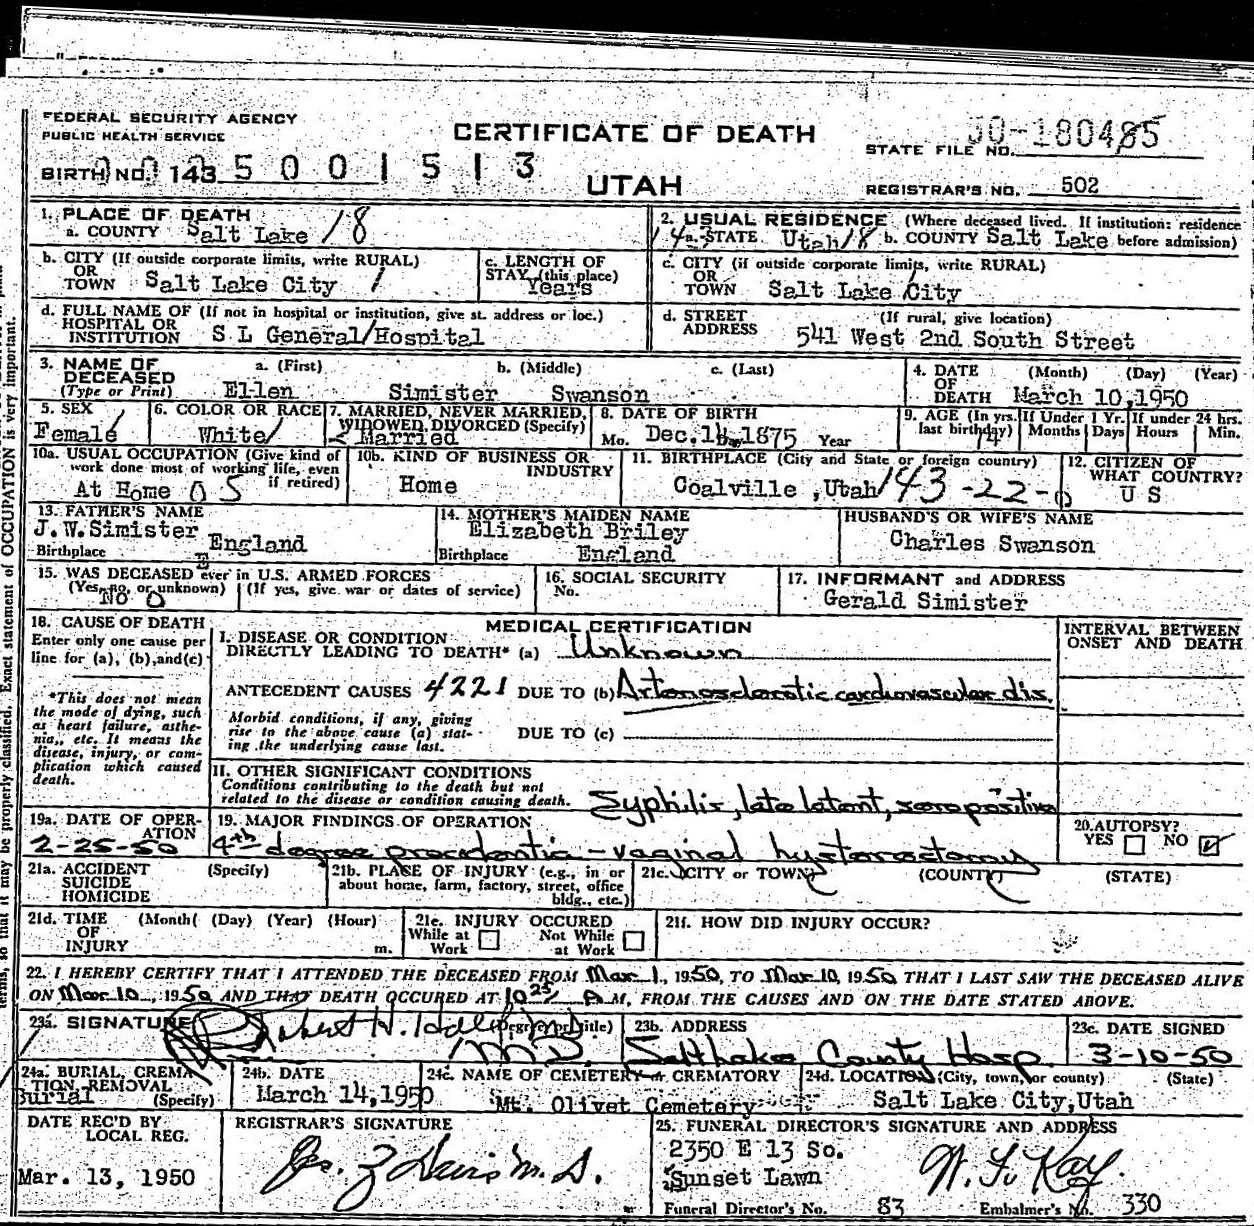 FEDERAL SECURITY AGENCY
PUBLIC HEALTH SERVICE
CERTIFICATE OF DEATH
UTAH
STATE FILE NO. 50-180485
BIRTH NO. 143 5 0 0 1 5 1 3
REGISTRAR'S NO. 502
1. PLACE OF DEATH
a. COUNTY Salt Lake 18
2. USUAL RESIDENCE (Where deceased lived. If institution: residence before admission)
a. STATE Utah 18 b. COUNTY Salt Lake
b. CITY (If outside corporate limits, write RURAL)
OR
TOWN Salt Lake City 1
c. LENGTH OF
STAY (this place)
Years
c. CITY (if outside corporate limits, write RURAL)
OR
TOWN Salt Lake City
d. FULL NAME OF (If not in hospital or institution, give st. address or loc.)
HOSPITAL OR
INSTITUTION S L General/Hospital
d. STREET (If rural, give location)
ADDRESS 541 West 2nd South Street
3. NAME OF a. (First) b. (Middle) c. (Last)
DECEASED
(Type or Print) Ellen Simister Swanson
4. DATE (Month) (Day) (Year)
OF
DEATH March 10,1950
5. SEX
Female
6. COLOR OR RACE
White
7. MARRIED, NEVER MARRIED,
WIDOWED, DIVORCED (Specify)
Married
8. DATE OF BIRTH
Mo. Dec. 14, 1875 Year
9. AGE (In yrs. last birthday) 74
If Under 1 Yr. Months Days
If under 24 hrs. Hours Min.
10a. USUAL OCCUPATION (Give kind of
work done most of working life, even
if retired)
At Home 0 5
10b. KIND OF BUSINESS OR
INDUSTRY
Home
11. BIRTHPLACE (City and State or foreign country)
Coalville ,Utah 143-22-0
12. CITIZEN OF
WHAT COUNTRY?
U S
13. FATHER'S NAME
J.W.Simister
Birthplace England
14. MOTHER'S MAIDEN NAME
Elizabeth Briley
Birthplace England
HUSBAND'S OR WIFE'S NAME
Charles Swanson
15. WAS DECEASED ever in U.S. ARMED FORCES
(Yes, no, or unknown) (If yes, give war or dates of service)
No 0
16. SOCIAL SECURITY
No.
17. INFORMANT and ADDRESS
Gerald Simister
18. CAUSE OF DEATH
Enter only one cause per
line for (a), (b), and (c)
*This does not mean
the mode of dying, such
as heart failure, asthe-
nia, etc. It means the
disease, injury, or com-
plication which caused
death.
MEDICAL CERTIFICATION
INTERVAL BETWEEN
ONSET AND DEATH
I. DISEASE OR CONDITION
DIRECTLY LEADING TO DEATH* (a) Unknown
ANTECEDENT CAUSES 4221 DUE TO (b) Arteriosclerotic cardiovascular dis.
Morbid conditions, if any, giving
rise to the above cause (a) stat-
ing the underlying cause last.
DUE TO (c)
II. OTHER SIGNIFICANT CONDITIONS
Conditions contributing to the death but not
related to the disease or condition causing death. Syphilis, late latent, seropositive
19a. DATE OF OPER-
ATION
2-25-50
19. MAJOR FINDINGS OF OPERATION
4th degree procedentia - vaginal hysterectomy
20. AUTOPSY?
YES NO
21a. ACCIDENT (Specify)
SUICIDE
HOMICIDE
21b. PLACE OF INJURY (e.g., in or
about home, farm, factory, street, office
bldg., etc.)
21c. CITY or TOWN) (COUNTY) (STATE)
21d. TIME (Month( (Day) (Year) (Hour)
OF
INJURY m.
21e. INJURY OCCURED
While at Work Not While at Work
21f. HOW DID INJURY OCCUR?
22. I HEREBY CERTIFY THAT I ATTENDED THE DECEASED FROM Mar 1, 1950, TO Mar 10, 1950 THAT I LAST SAW THE DECEASED ALIVE
ON Mar 10, 1950 AND THAT DEATH OCCURED AT 10 25 P M, FROM THE CAUSES AND ON THE DATE STATED ABOVE.
23a. SIGNATURE (Degree or title)
Robert H. M.D.
23b. ADDRESS
Salt Lake County Hosp.
23c. DATE SIGNED
3-10-50
24a. BURIAL, CREMA-
TION, REMOVAL
Burial (Specify)
24b. DATE
March 14,1950
24c. NAME OF CEMETERY or CREMATORY
Mt. Olivet Cemetery
24d. LOCATION (City, town, or county) (State)
Salt Lake City,Utah
DATE REC'D BY
LOCAL REG.
Mar. 13, 1950
REGISTRAR'S SIGNATURE
M.D.
25. FUNERAL DIRECTOR'S SIGNATURE AND ADDRESS
2350 E 13 So.
Sunset Lawn
Kay
Funeral Director's No. 83 Embalmer's No. 330
terms, so that it may be properly classified. Exact statement of OCCUPATION is very important.